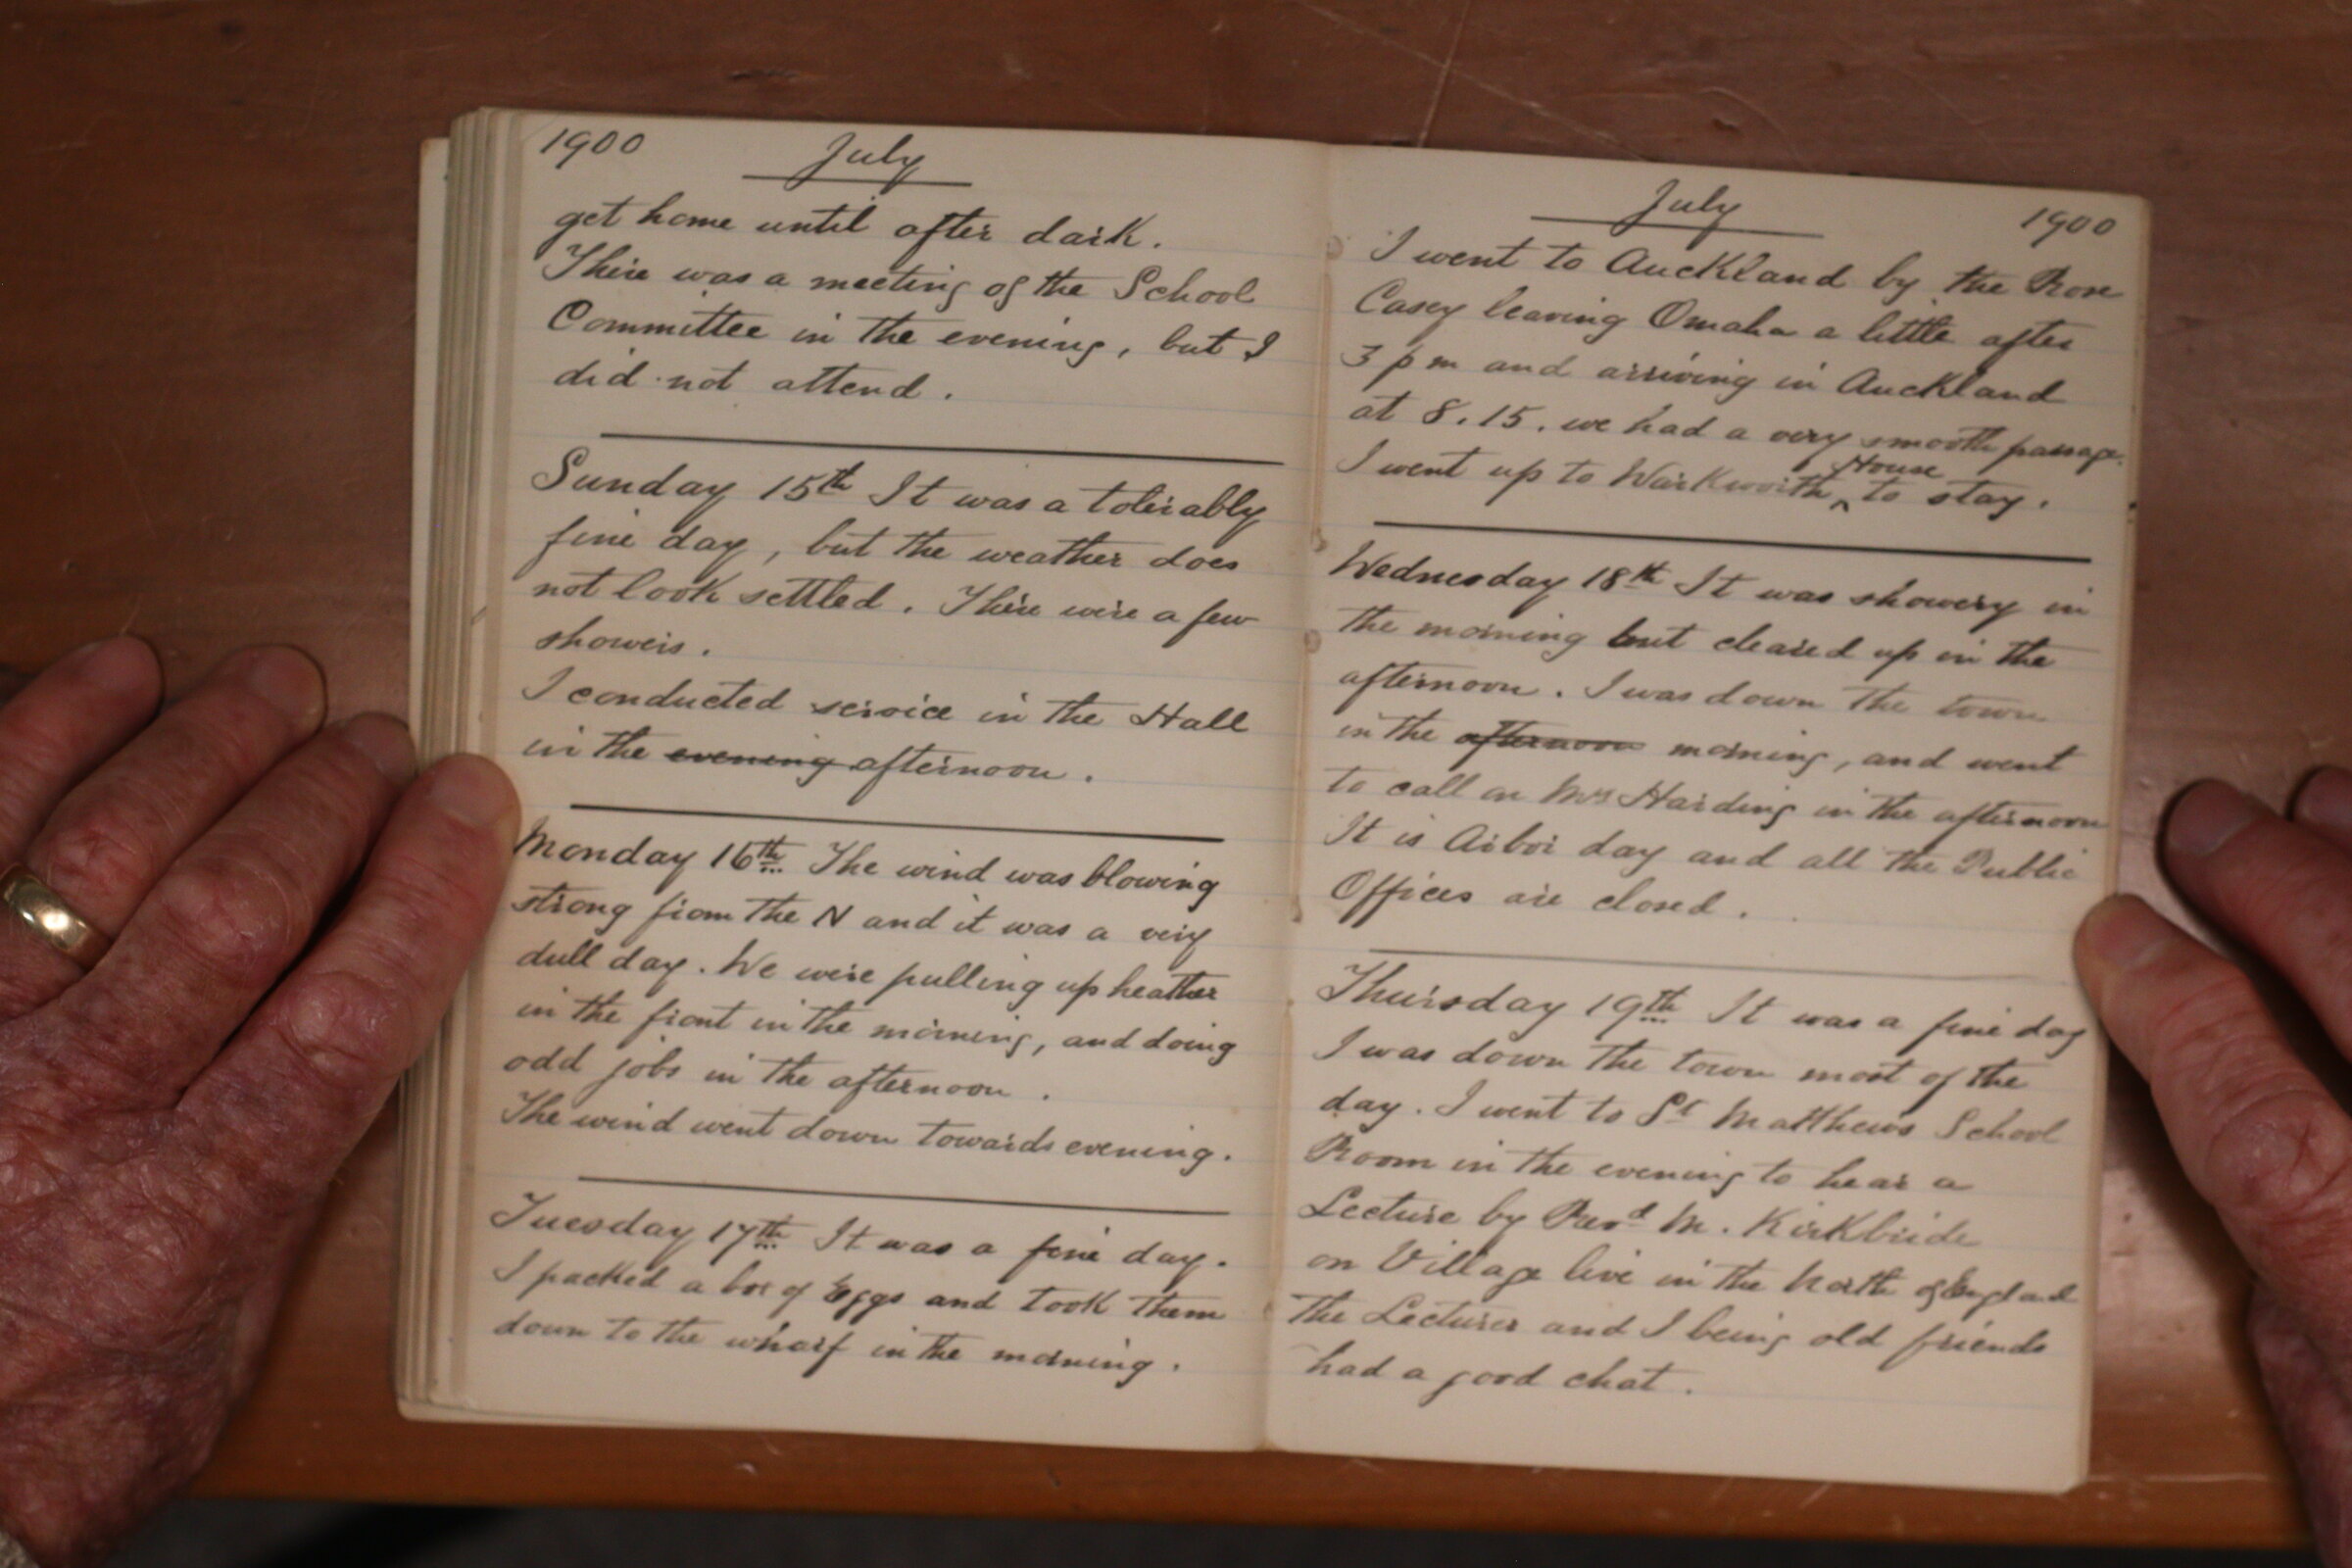 1900 July
get home until after dark.
There was a meeting of the School
Committee in the evening, but I
did not attend.
Sunday 15th It was a tolerably
fine day, but the weather does
not look settled. There were a few
showers.
I conducted service in the Hall
in the evening afternoon.
Monday 16th The wind was blowing
strong from the N and it was a very
dull day. We were pulling up heather
in the front in the morning, and doing
odd jobs in the afternoon.
The wind went down towards evening.
Tuesday 17th It was a fine day.
I packed a box of Eggs and took them
down to the wharf in the morning.
July 1900
I went to Auckland by the Rose
Casey leaving Omaha a little after
3 pm and arriving in Auckland
at 8.15. we had a very smooth passage.
I went up to Warkworth House to stay.
Wednesday 18th It was showery in
the morning but cleared up in the
afternoon. I was down the town
in the afternoon morning, and went
to call on Mrs Harding in the afternoon
It is Arbor day and all the Public
Offices are closed.
Thursday 19th It was a fine day
I was down the town most of the
day. I went to St Matthews School
Room in the evening to hear a
Lecture by Revd M. Kirkbride
on Village live in the North of England
The Lecturer and I being old friends
had a good chat.